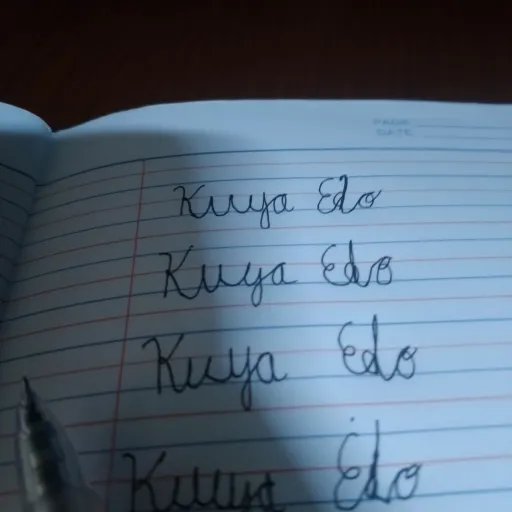 PAGE
DATE
Kuya Edo
Kuya Edo
Kuya Edo
Kuya Edo